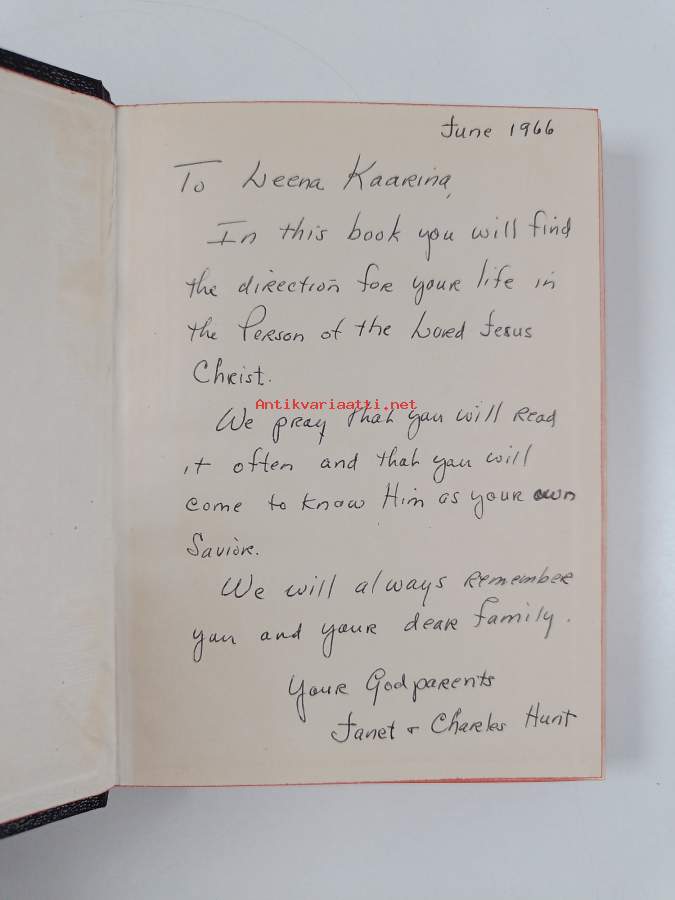 June 1966
To Leena Kaarina,
In this book you will find
the direction for your life in
the Person of the Lord Jesus
Christ.
Antikvariaatti.net
We pray that you will read
it often and that you will
come to know Him as your own
Savior.
We will always remember
you and your dear family.
Your Godparents
Janet + Charles Hunt